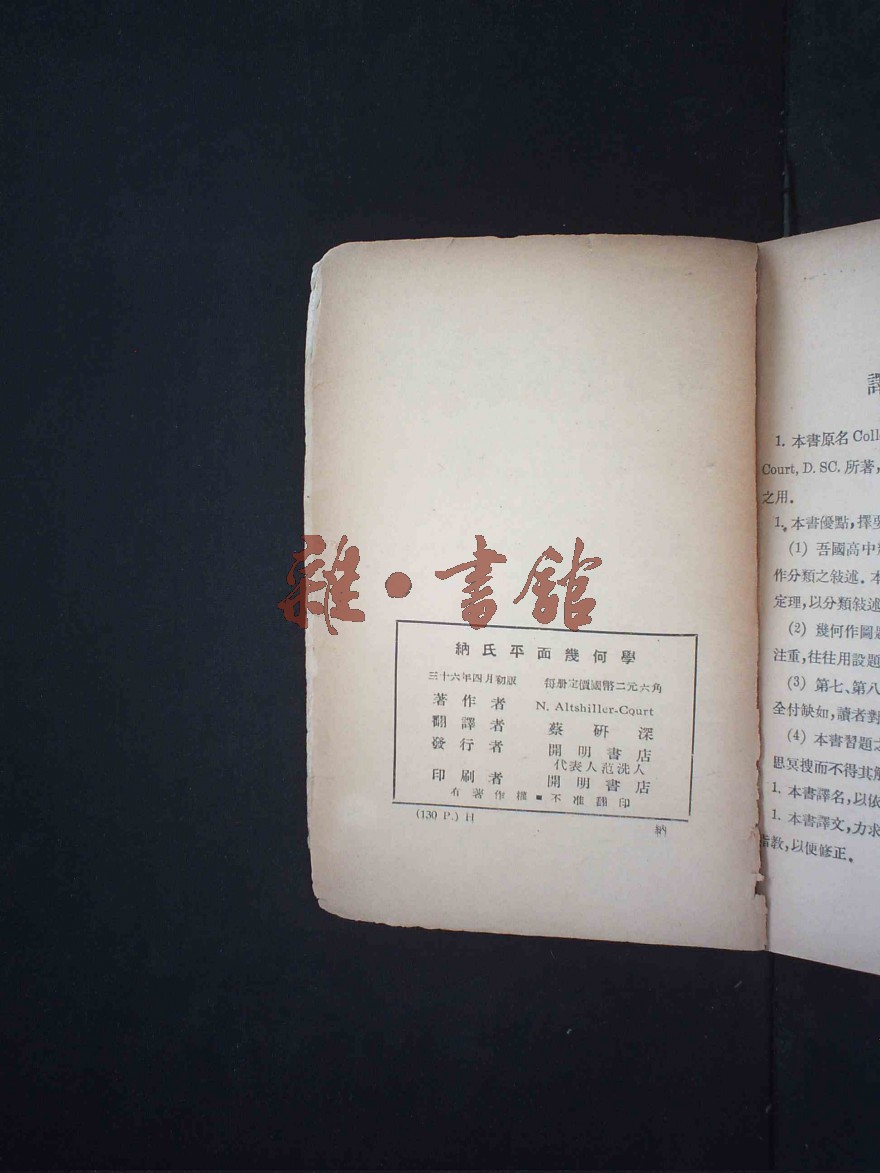 雜·書館
納氏平面幾何學
三十六年四月初版 每册定價國幣二元六角
著作者 N. Altshiller-Court
翻譯者 蔡研深
發行者 開明書店
代表人范洗人
印刷者 開明書店
有著作權■不准翻印
(130 P.) H 納
譯
1. 本書原名 Coll
Court, D. SC. 所著,
之用.
1. 本書優點,擇要
(1) 吾國高中
作分類之敍述.本
定理,以分類敍述
(2) 幾何作圖題
注重,往往用設題
(3) 第七、第八
全付缺如,讀者對
(4) 本書習題之
思冥搜而不得其解
1. 本書譯名,以依
1. 本書譯文,力求
指教,以便修正.